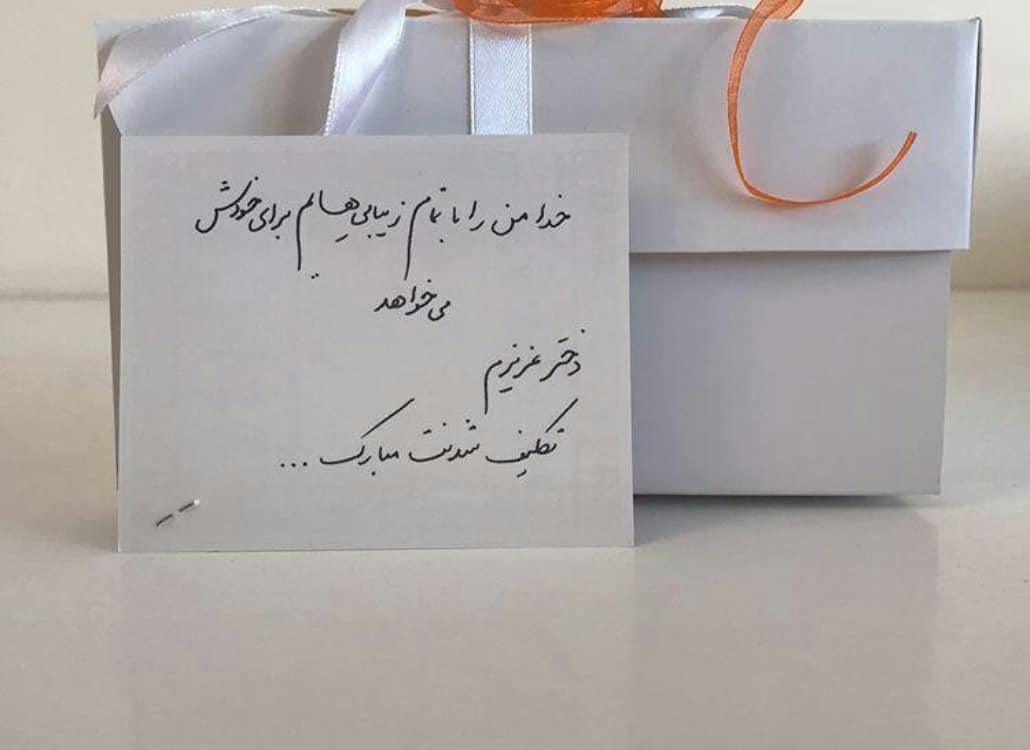 خدا من را با تمام زیبایی‌هایم برای خودش
می‌خواهد
دختر عزیزم
تکلیف شدنت مبارک ...